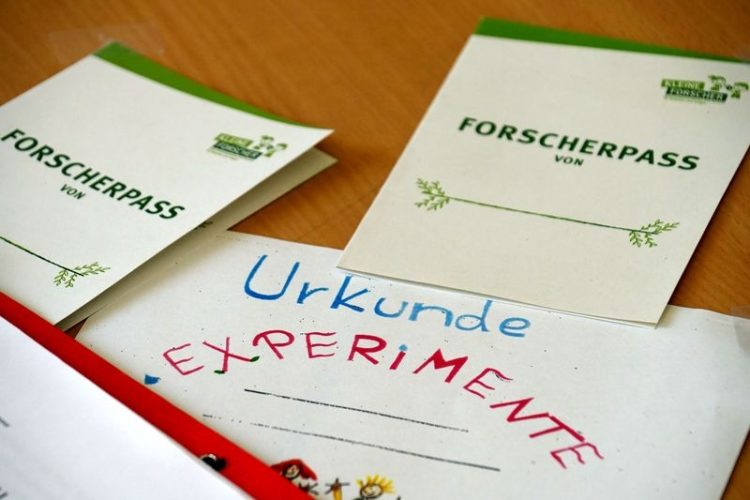 KLEINE
FORSCHER
FORSCHERPASS
VON
KLEINE
FORSCHER
FORSCHERPASS
VON
Urkunde
EXPERiMENTE